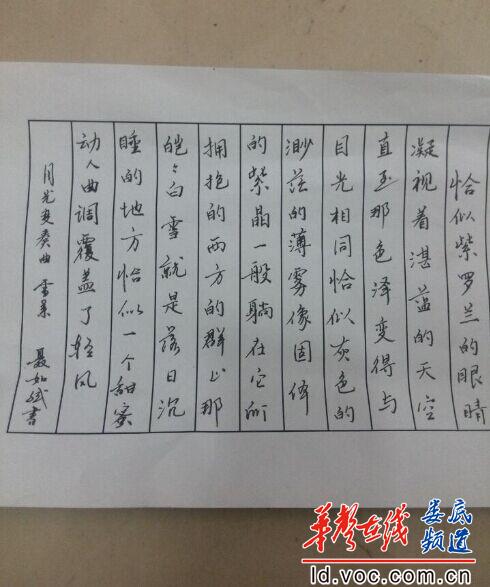 恰似紫罗兰的眼睛
凝视着湛蓝的天空
直至那色泽变得与
目光相同恰似灰色的
渺茫的薄雾像固体
的紫晶一般躺在它所
拥抱的两方的群山那
皑々白雪就是落日沉
睡的地方恰似一个甜蜜
动人曲调覆盖了轻风
月光变奏曲 雪莱 聂如斌书
华声在线 娄底频道
ld.voc.com.cn